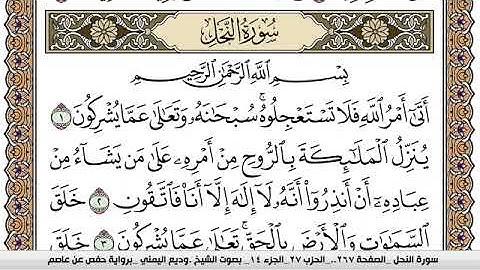 سُورَةُ النَّحْلِ
بِسْمِ اللَّهِ الرَّحْمَٰنِ الرَّحِيمِ
أَتَىٰ أَمْرُ اللَّهِ فَلَا تَسْتَعْجِلُوهُ ۚ سُبْحَانَهُ وَتَعَالَىٰ عَمَّا يُشْرِكُونَ ١
يُنَزِّلُ الْمَلَائِكَةَ بِالرُّوحِ مِنْ أَمْرِهِ عَلَىٰ مَن يَشَاءُ مِنْ
عِبَادِهِ أَنْ أَنذِرُوا أَنَّهُ لَا إِلَٰهَ إِلَّا أَنَا فَاتَّقُونِ ٢ خَلَقَ
السَّمَاوَاتِ وَالْأَرْضَ بِالْحَقِّ ۚ تَعَالَىٰ عَمَّا يُشْرِكُونَ ٣ خَلَقَ
سورة النحل _الصفحة ٢٦٧_.. الحزب ٢٧ _الجزء ١٤_ بصوت الشيخ .وديع اليمني _برواية حفص عن عاصم